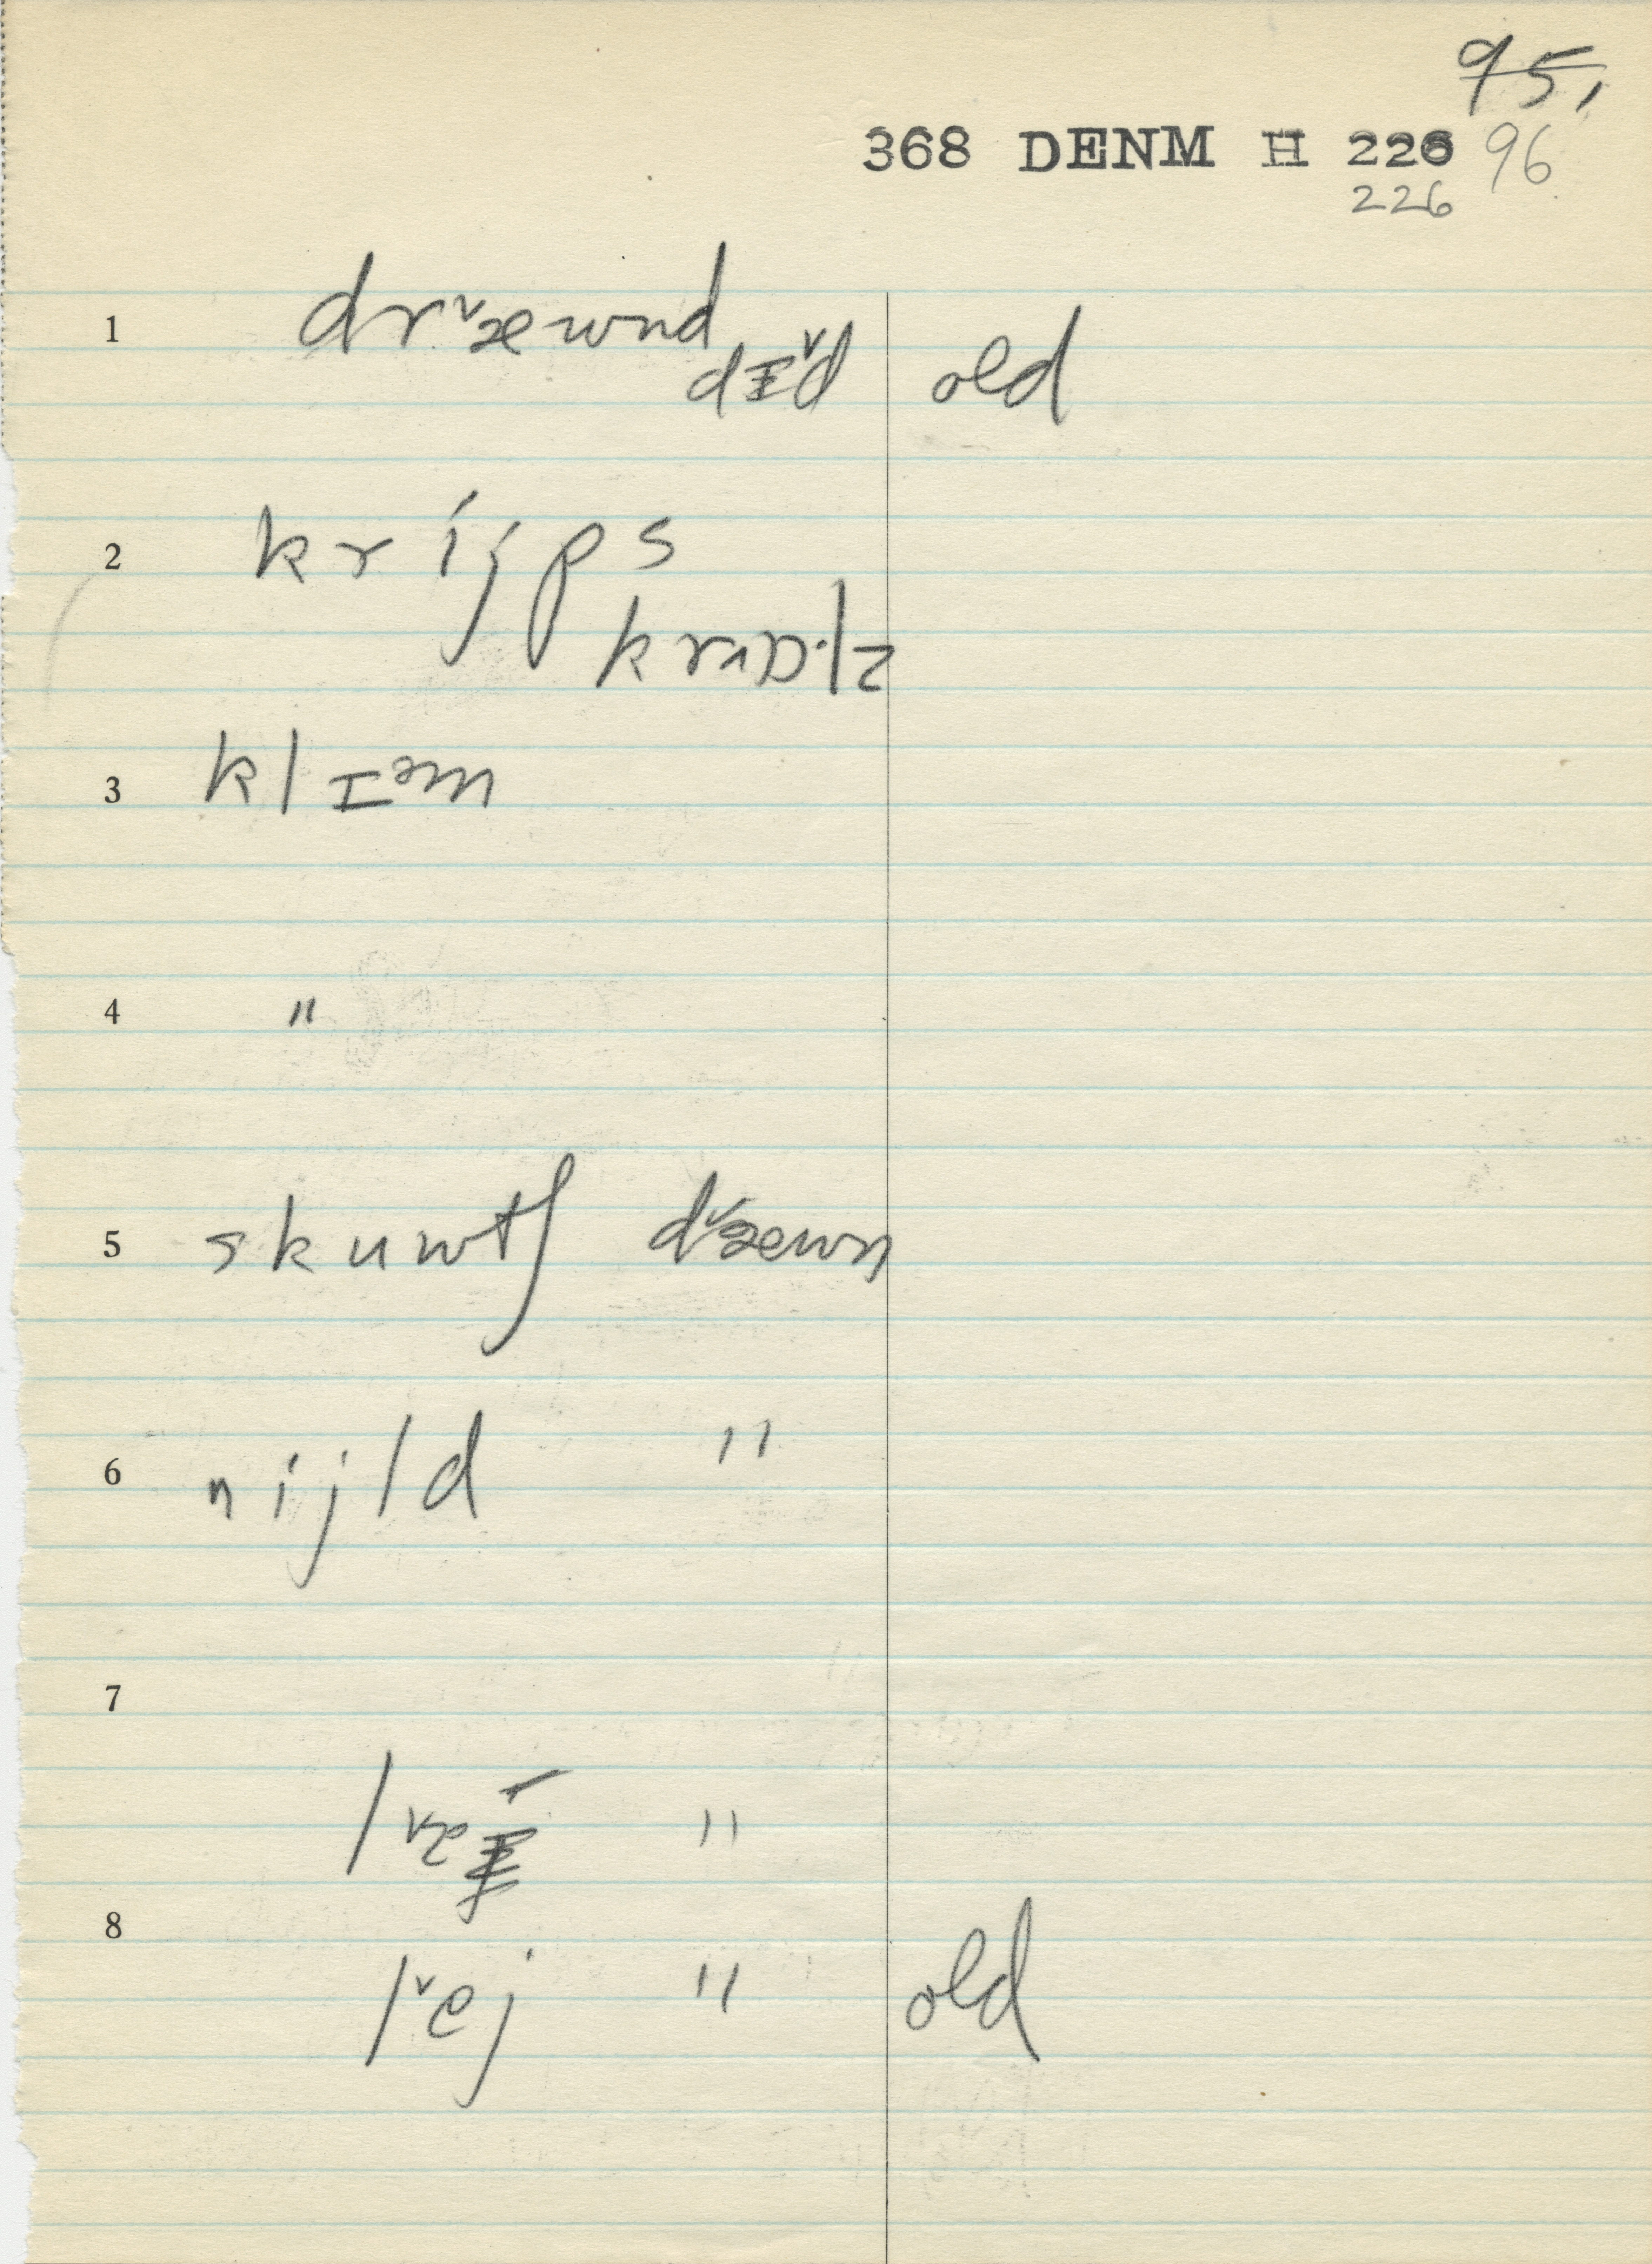 95,
368 DENM H 226 96
226
1 drᵛæwnd
dɪᵛd old
2 krijps
krɒ·lz
3 klɪᵊm
4 "
5 skuwtʃ dᵛæwn
6 nijld "
7
lᵛæ "
8
lᵛej " old